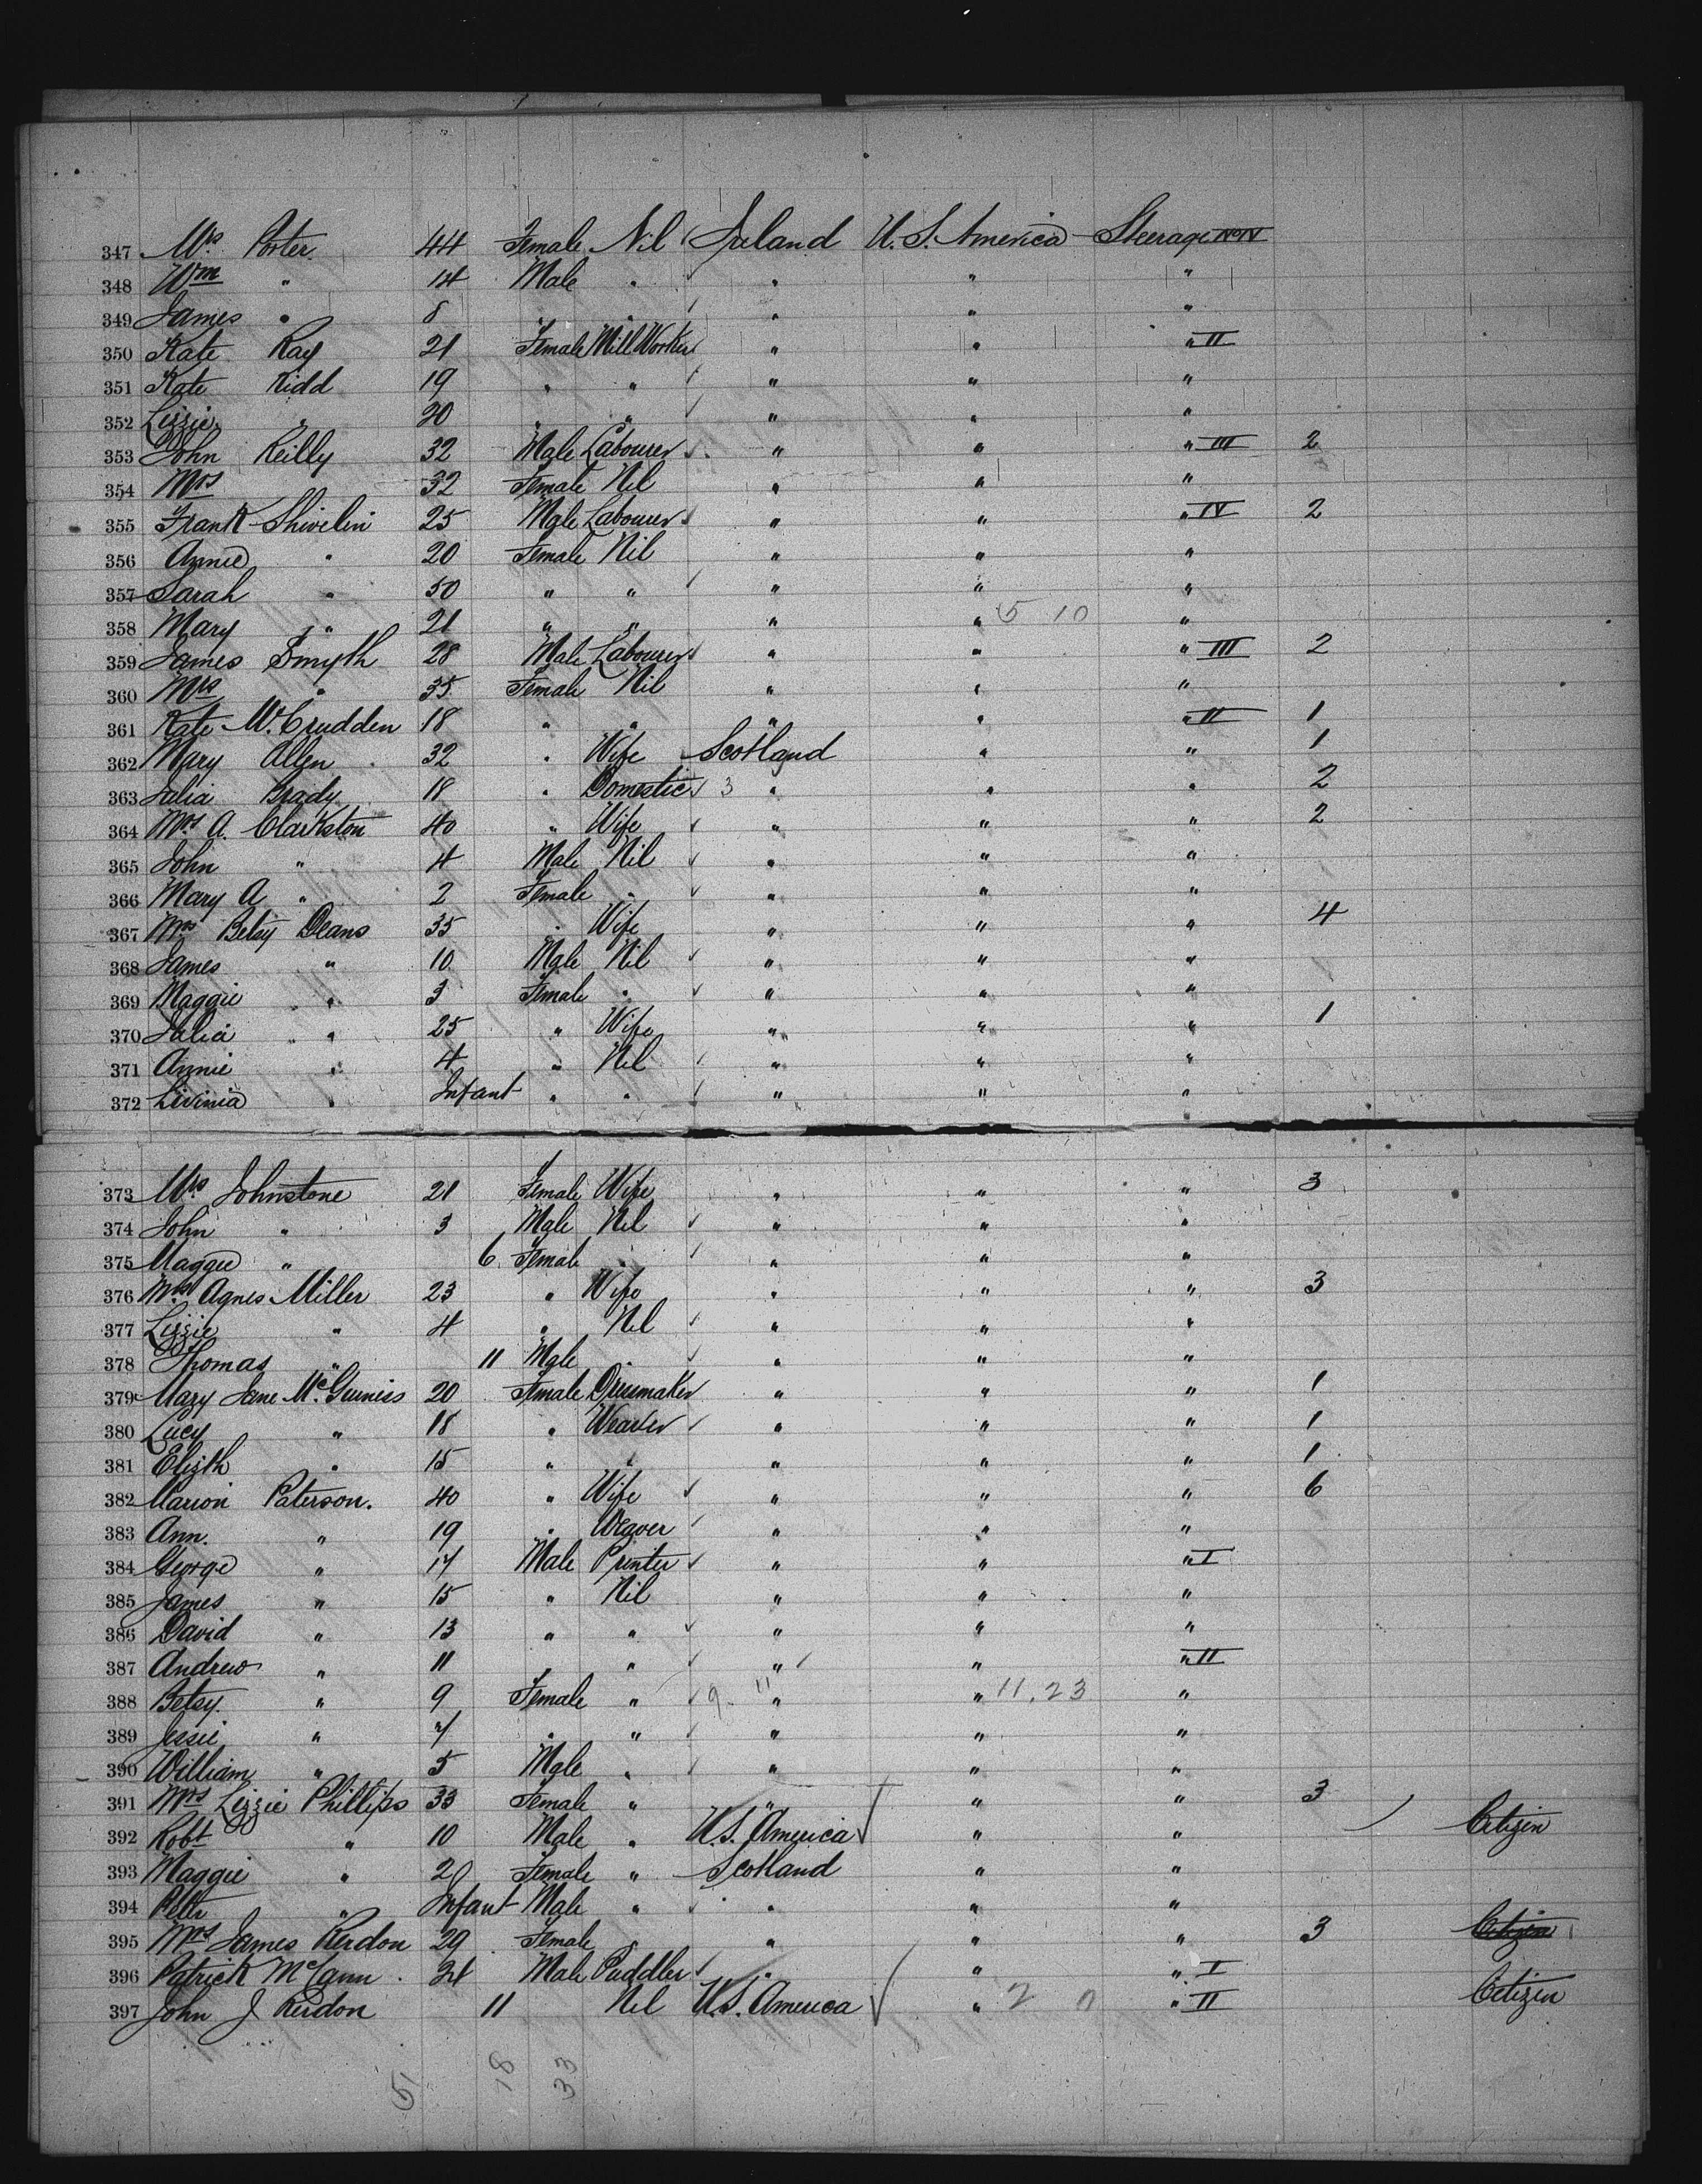 347 Mrs Porter. 44 Female Nil Ireland U.S. America Steerage No IV
348 Wm " 14 Male " " " "
349 James " 8 " " " " "
350 Kate Ray 21 Female Mill Worker " " " II
351 Kate Kidd 19 " " " " "
352 Lizzie " 20 " " " " "
353 John Reilly 32 Male Labourer " " " III 2
354 Mrs 32 Female Nil " " "
355 Frank Shivelin 25 Male Labourer " " " IV 2
356 Annie " 20 Female Nil " " "
357 Sarah " 50 " " " " "
358 Mary " 21 " " " " 5 10 "
359 James Smyth 28 Male Labourer " " " III 2
360 Mrs " 35 Female Nil " " "
361 Kate McCrudden 18 " " " " " II 1
362 Mary Allen 32 " Wife Scotland " " 1
363 Julia Brady 18 " Domestic 3 " " " 2
364 Mrs A. Clarkston 40 " Wife " " " 2
365 John " 4 Male Nil " " "
366 Mary A " 2 Female " " " "
367 Mrs Betsy Deans 35 " Wife " " " 4
368 James " 10 Male Nil " " "
369 Maggie " 3 Female " " " "
370 Julia " 25 " Wife " " " 1
371 Annie " 4 " Nil " " "
372 Livinia " Infant " " " " "
373 Mrs Johnstone 21 Female Wife " " " 3
374 John " 3 Male Nil " " "
375 Maggie " 6 Female " " " "
376 Mrs Agnes Miller 23 " Wife " " " 3
377 Lizzie " 4 " Nil " " "
378 Thomas " 11 Male " " " "
379 Mary Jane McGuiness 20 Female Dressmaker " " " 1
380 Lucy " 18 " Weaver " " " 1
381 Elizth " 15 " " " " " 1
382 Marion Paterson. 40 " Wife " " " 6
383 Ann. " 19 " Weaver " " "
384 George " 17 Male Printer " " " I
385 James " 15 " Nil " " "
386 David " 13 " " " " "
387 Andrew " 11 " " " " " II
388 Betsy. " 9 Female " 9 11 " " 11.23 "
389 Jessie " 7 " " " " "
390 William " 5 Male " " " "
391 Mrs Lizzie Phillips 33 Female " " " " 3
392 Robt " 10 Male " U.S. America " " Citizen
393 Maggie " Female " Scotland " "
394 Peter " Infant Male " " " "
395 Mrs James Reidon 29 Female " " " " 3 Citizen
396 Patrick McCann Male Puddler " " " I
397 John J Reidon 11 Nil U.S. America " 2 0 " II Citizen
51 18 33